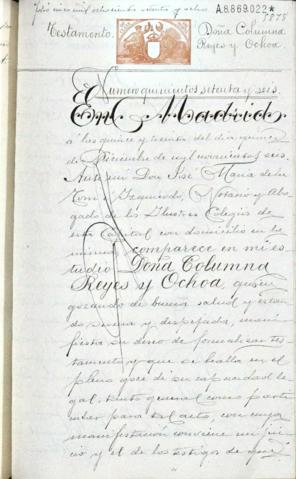 folio cinco mil ochocientos setenta y ocho
A8.869.022*
5878
Testamento. Doña Columna
Reyes y Ochoa
Numero quinientos setenta y seis.
En Madrid
á las quince y treinta del dia quince
de Diciembre de mil novecientos seis.
Ante mi Don José Maria de la
Torre é Izquierdo, Notario y Abo-
gado de los Ilustres Colegios de
esta Capital con domicilio en la
misma, comparece en mi es-
tudio Doña Columna
Reyes y Ochoa quien
gozando de buena salud y estan-
do, serena y despejada, mani-
fiesta su deseo de formalizar tes-
tamento y que se halla en el
pleno goce de su capacidad le-
gal, tanto general como particu-
lar para tal acto, con cuya
manifestación conviene mi jui-
cio y el de los testigos de que